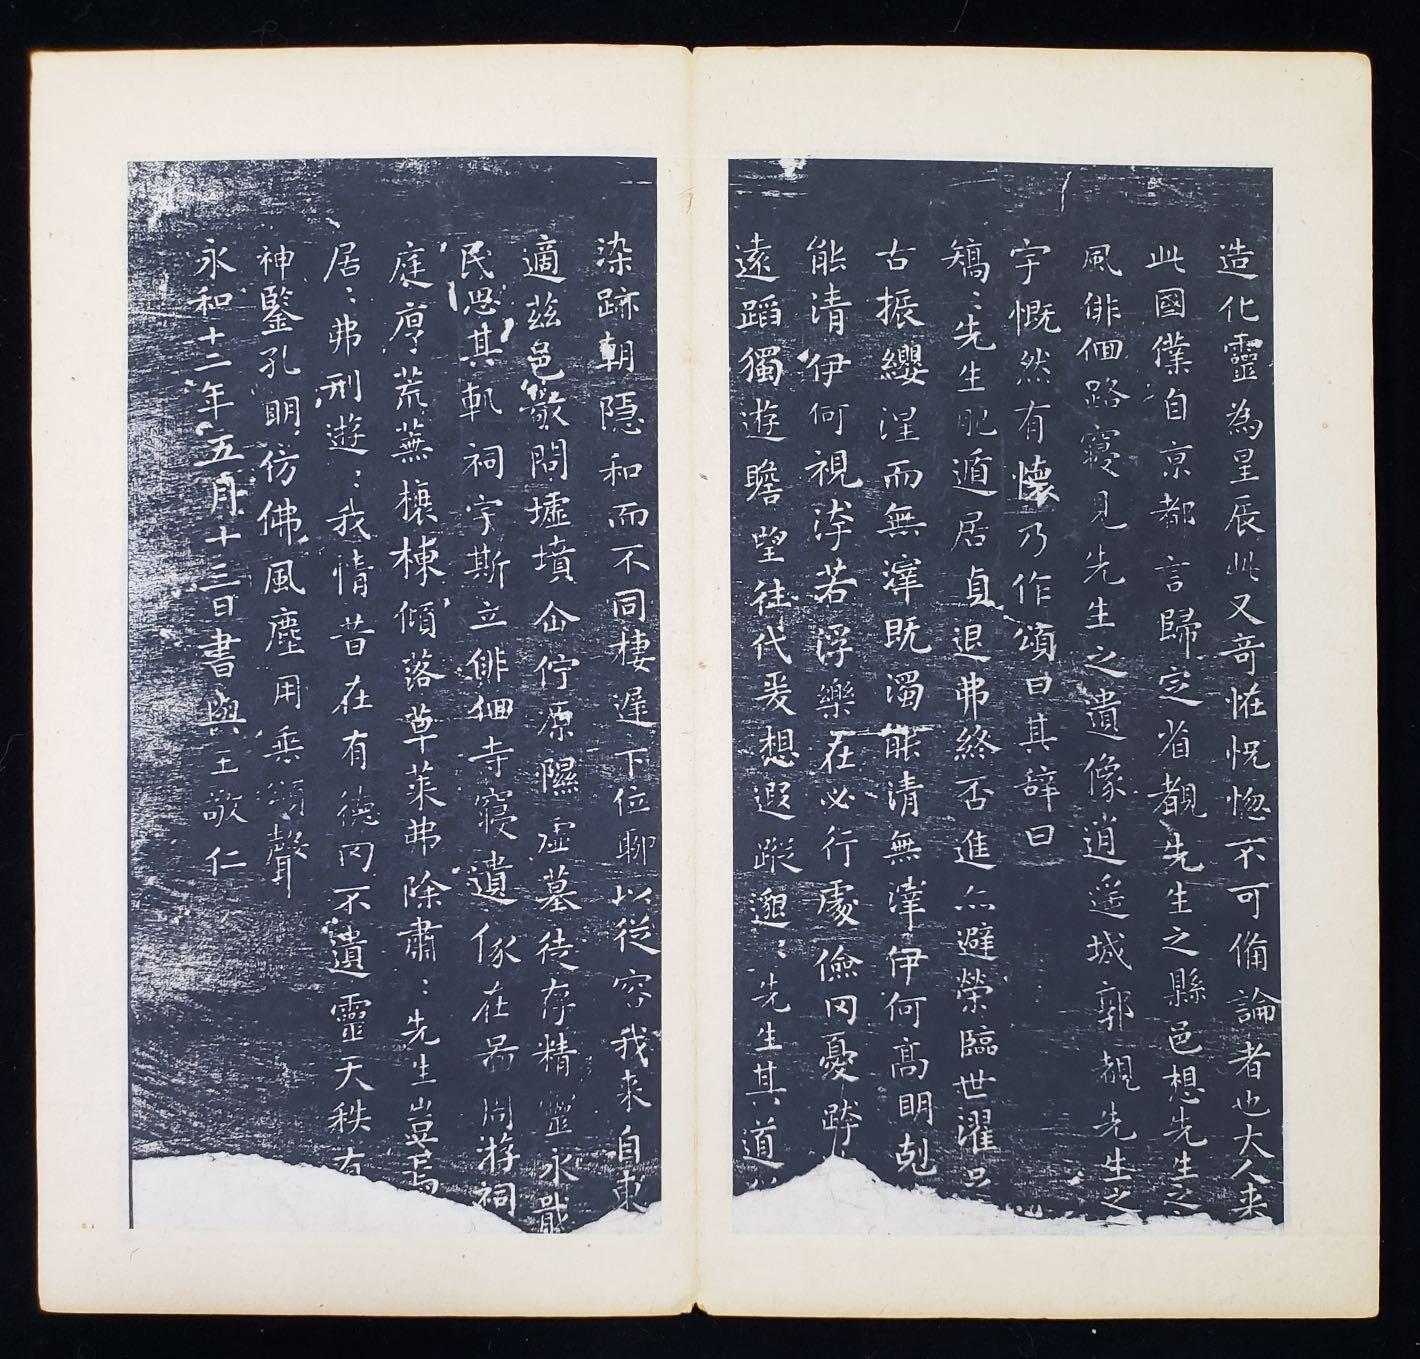 造化靈為星辰此又奇恠怳惚不可備論者也大人来
此國僕自京都言歸定省覩先生之縣邑想先生之
風徘佪路寑見先生之遺像逍遥城郭覩先生之
宇慨然有懐乃作頌曰其辞曰
矯〻先生肥遁居貞退弗終否進亦避榮臨世濯足
古振纓涅而無滓既濁能清無滓伊何高明克
能清伊何視涬若浮樂在必行處儉罔憂跨
遠蹈獨遊瞻望往代爰想遐蹤邈〻先生其道
染跡朝隠和而不同棲遲下位聊以従容我来自東
適茲邑敬問墟墳企佇原隰虚墓徒存精靈永戢
民思其軌祠宇斯立徘佪寺寑遺像在啚周遊祠
庭序荒蕪榱棟傾落草莱弗除肅〻先生豈焉
居〻弗刑遊〻我情昔在有徳罔不遺靈天秩有
神鑒孔明仿佛風塵用垂頌聲
永和十二年五月十三日書與王敬仁